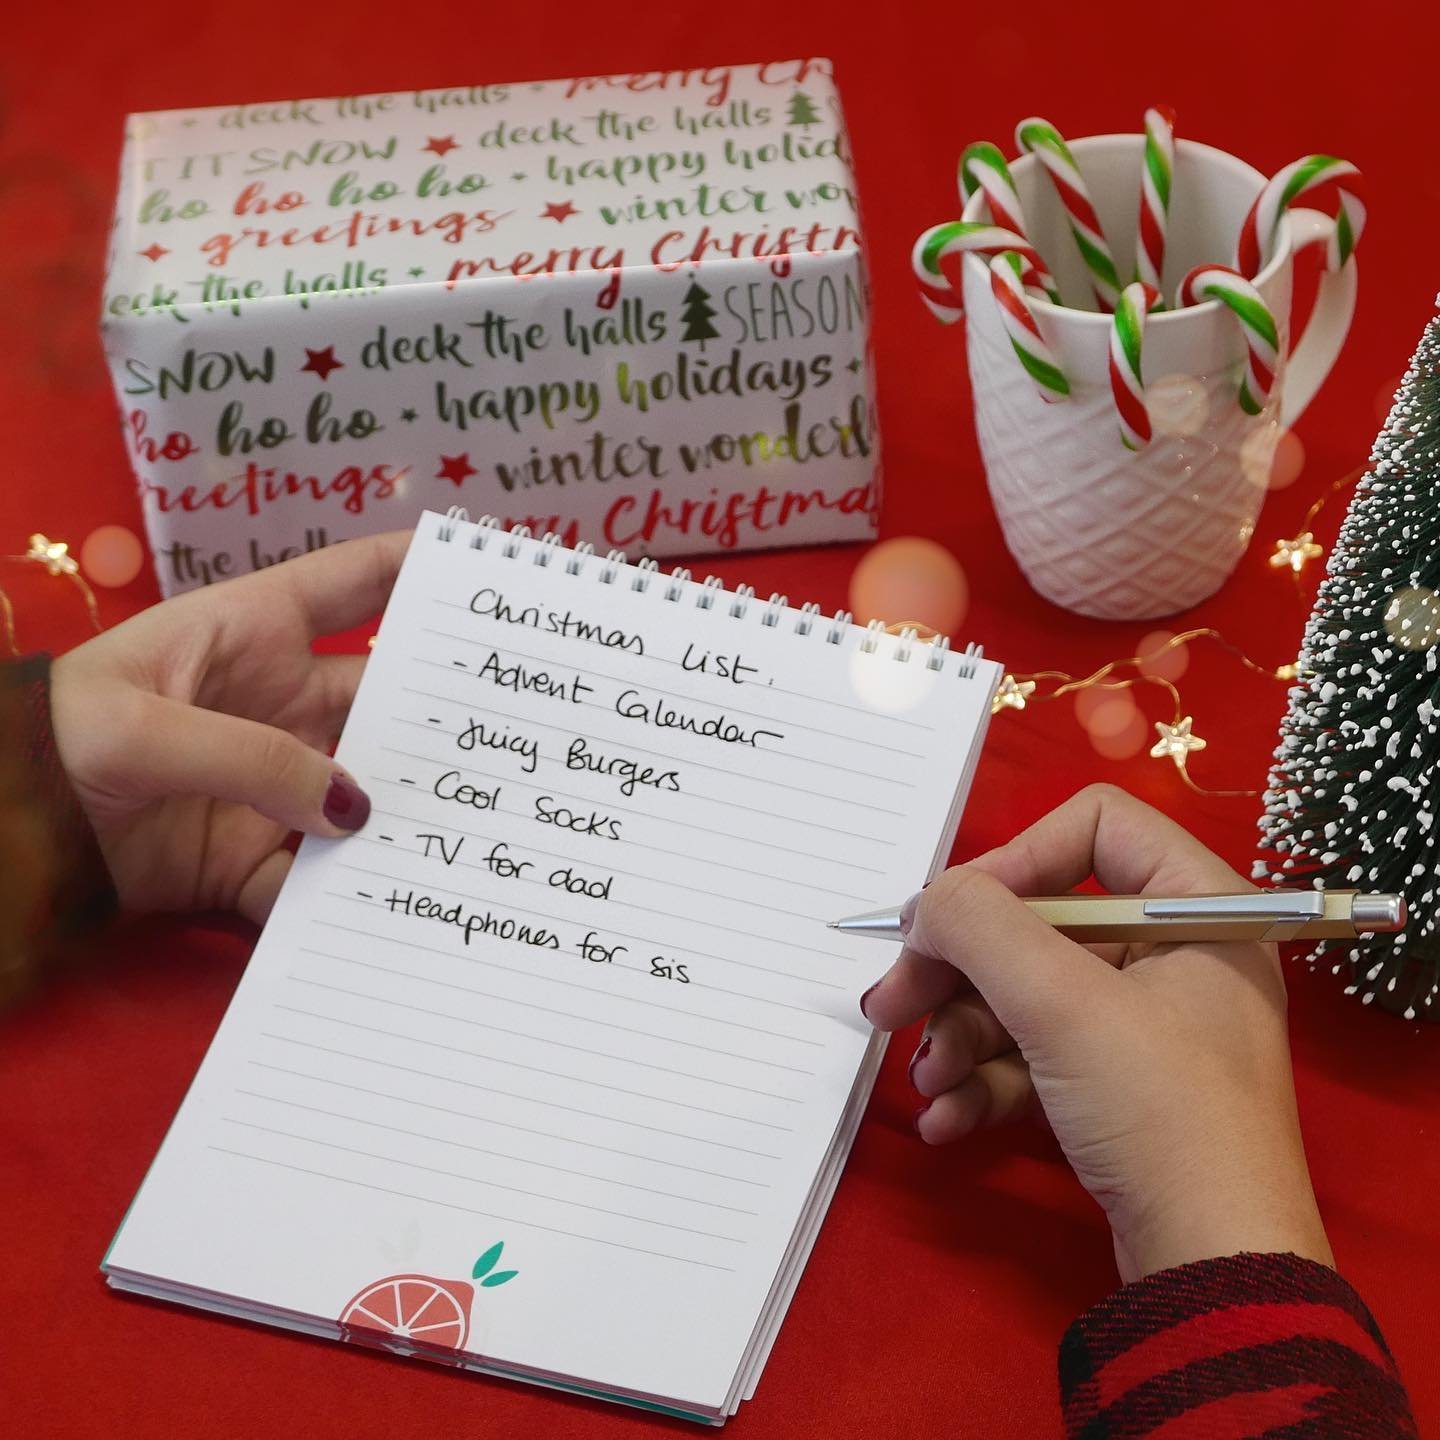 deck the halls merry Ch
T IT SNOW deck the halls
ho ho ho ho happy holid
greetings winter wo
eck the halls merry Christm
SNOW deck the halls SEASON
ho ho ho happy holidays
reetings winter wonderl
the halls Christmas
Christmas List.
- Advent Calendar
- Juicy Burgers
- Cool Socks
- TV for dad
- Headphones for sis